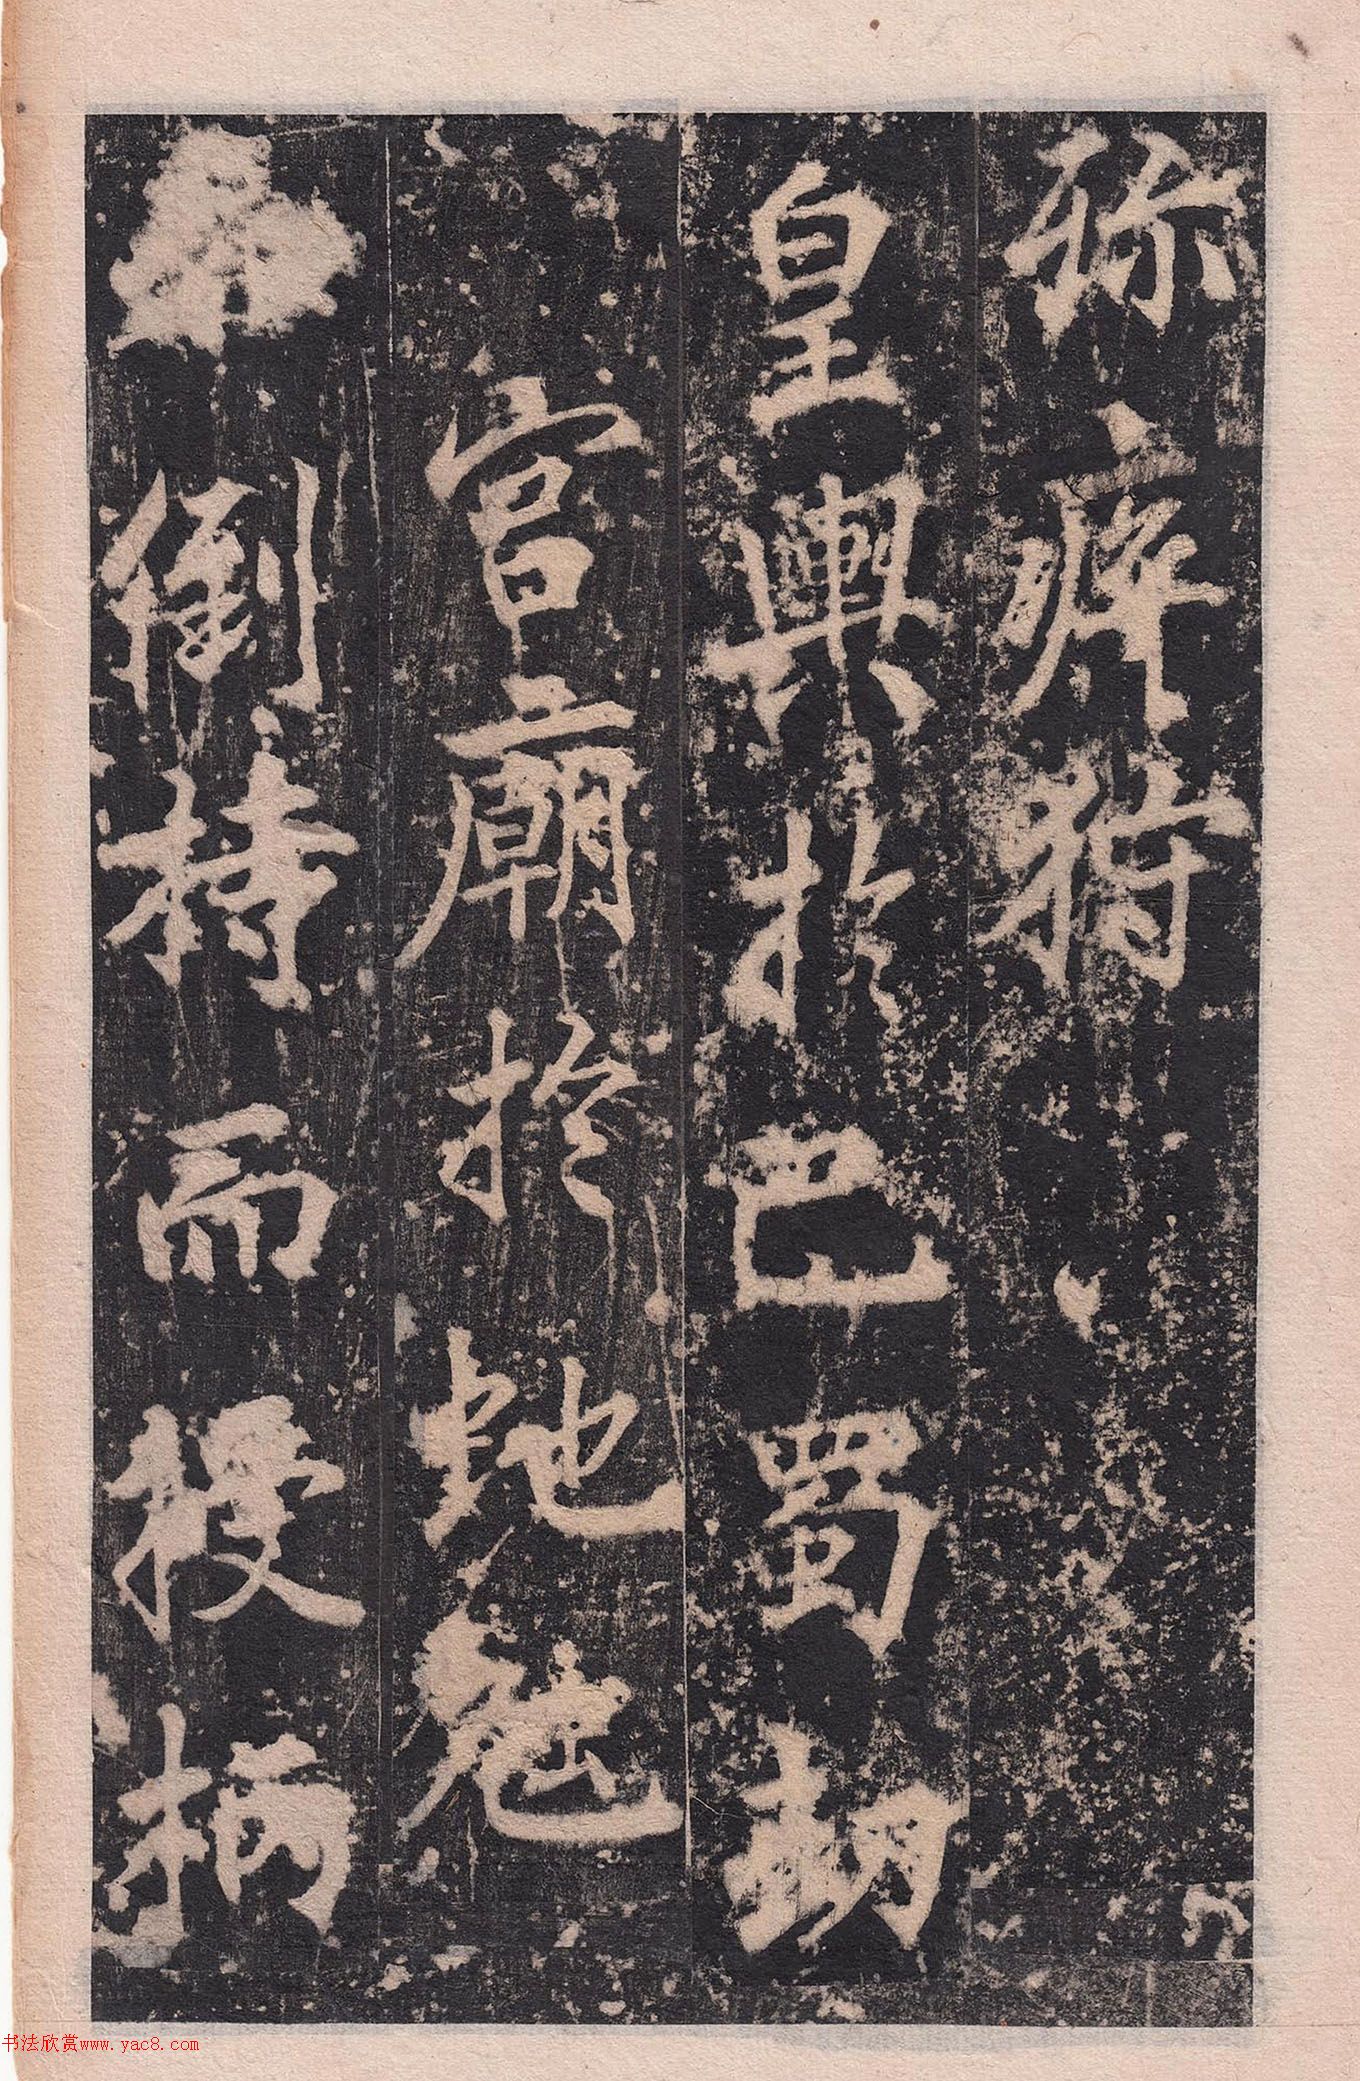 殄瘁狩
皇輿於巴蜀劫
宮廟於虵虺
倒持而授柄
书法欣赏www.yac8.com